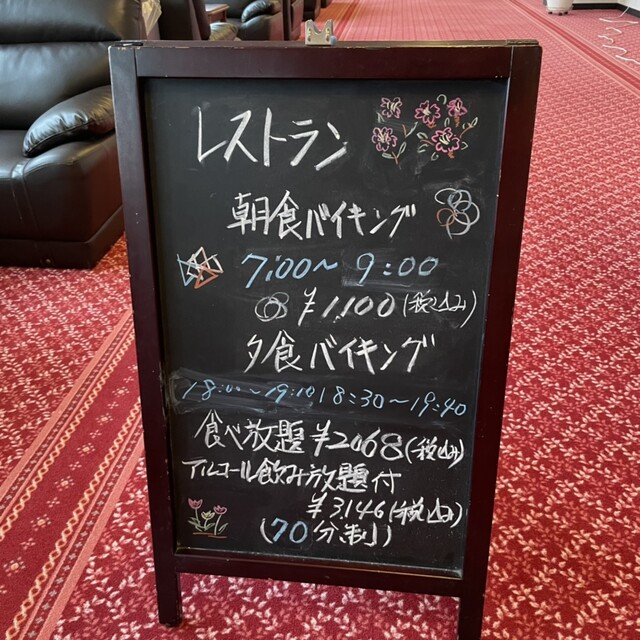 レストラン
朝食バイキング
7:00～9:00
¥1,100(税込み)
夕食バイキング
18:00～19:10 18:30～19:40
食べ放題 ¥2068(税込み)
アルコール飲み放題付
¥3,146(税込み)
(70分制)